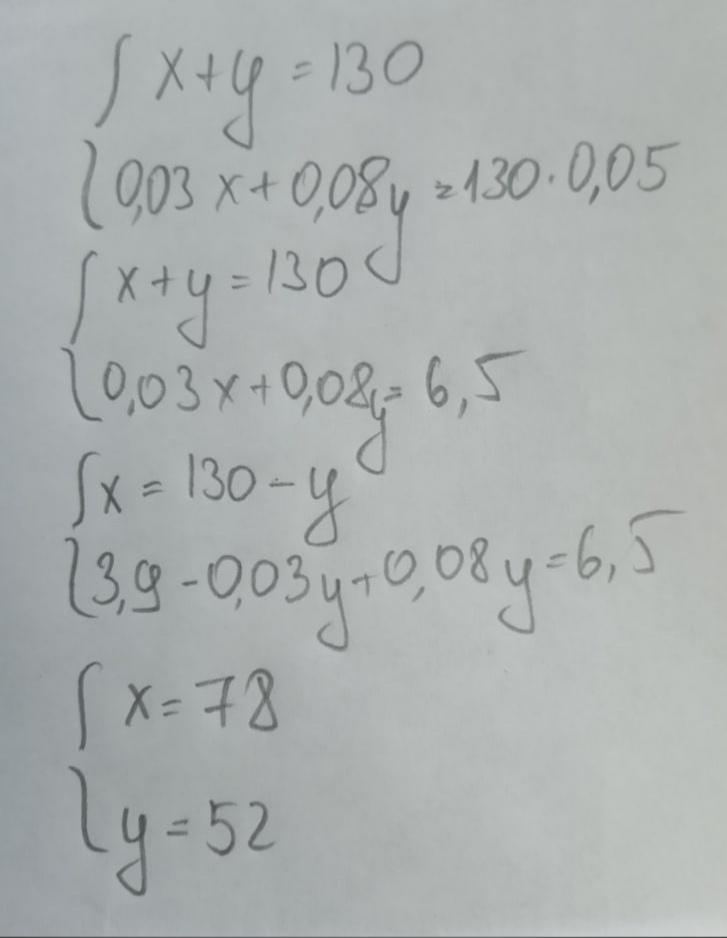 x+y=130
0,03x+0,08y=130·0,05
x+y=130
0,03x+0,08y=6,5
x=130-y
3,9-0,03y+0,08y=6,5
x=78
y=52